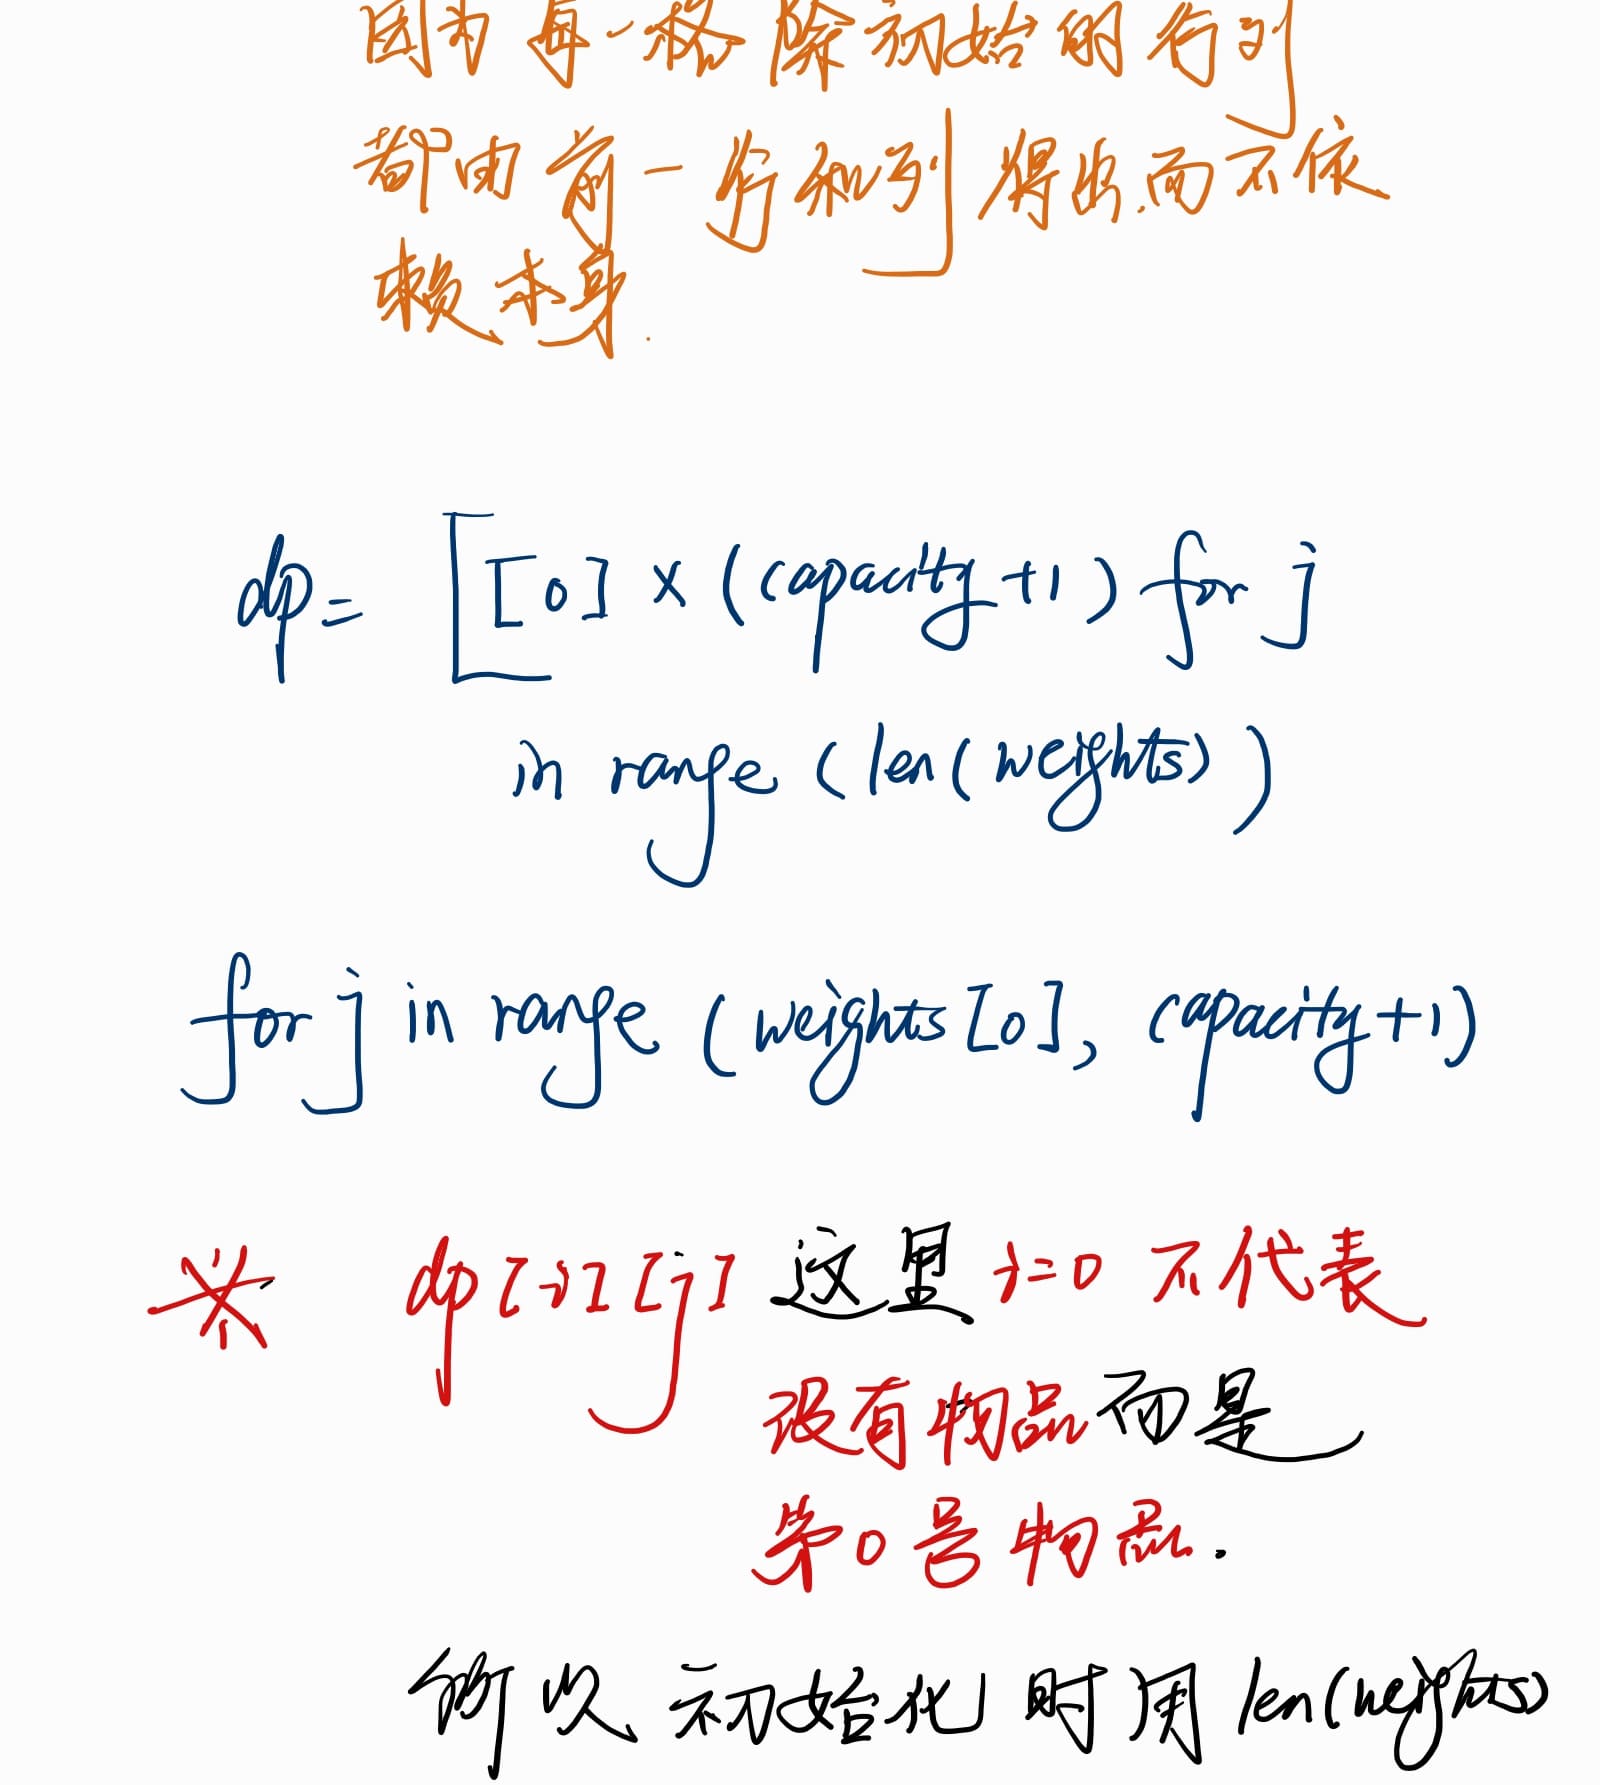 因为每一格除初始的行列
都由前一行和列得出,而不依
赖本身.
dp= [[0] × (capacity+1) for j
in range (len(weights))
for j in range (weights[0], capacity+1)
※ dp[i][j] 这里 i=0 不代表
没有物品而是
第0号物品.
所以初始化时用len(weights)